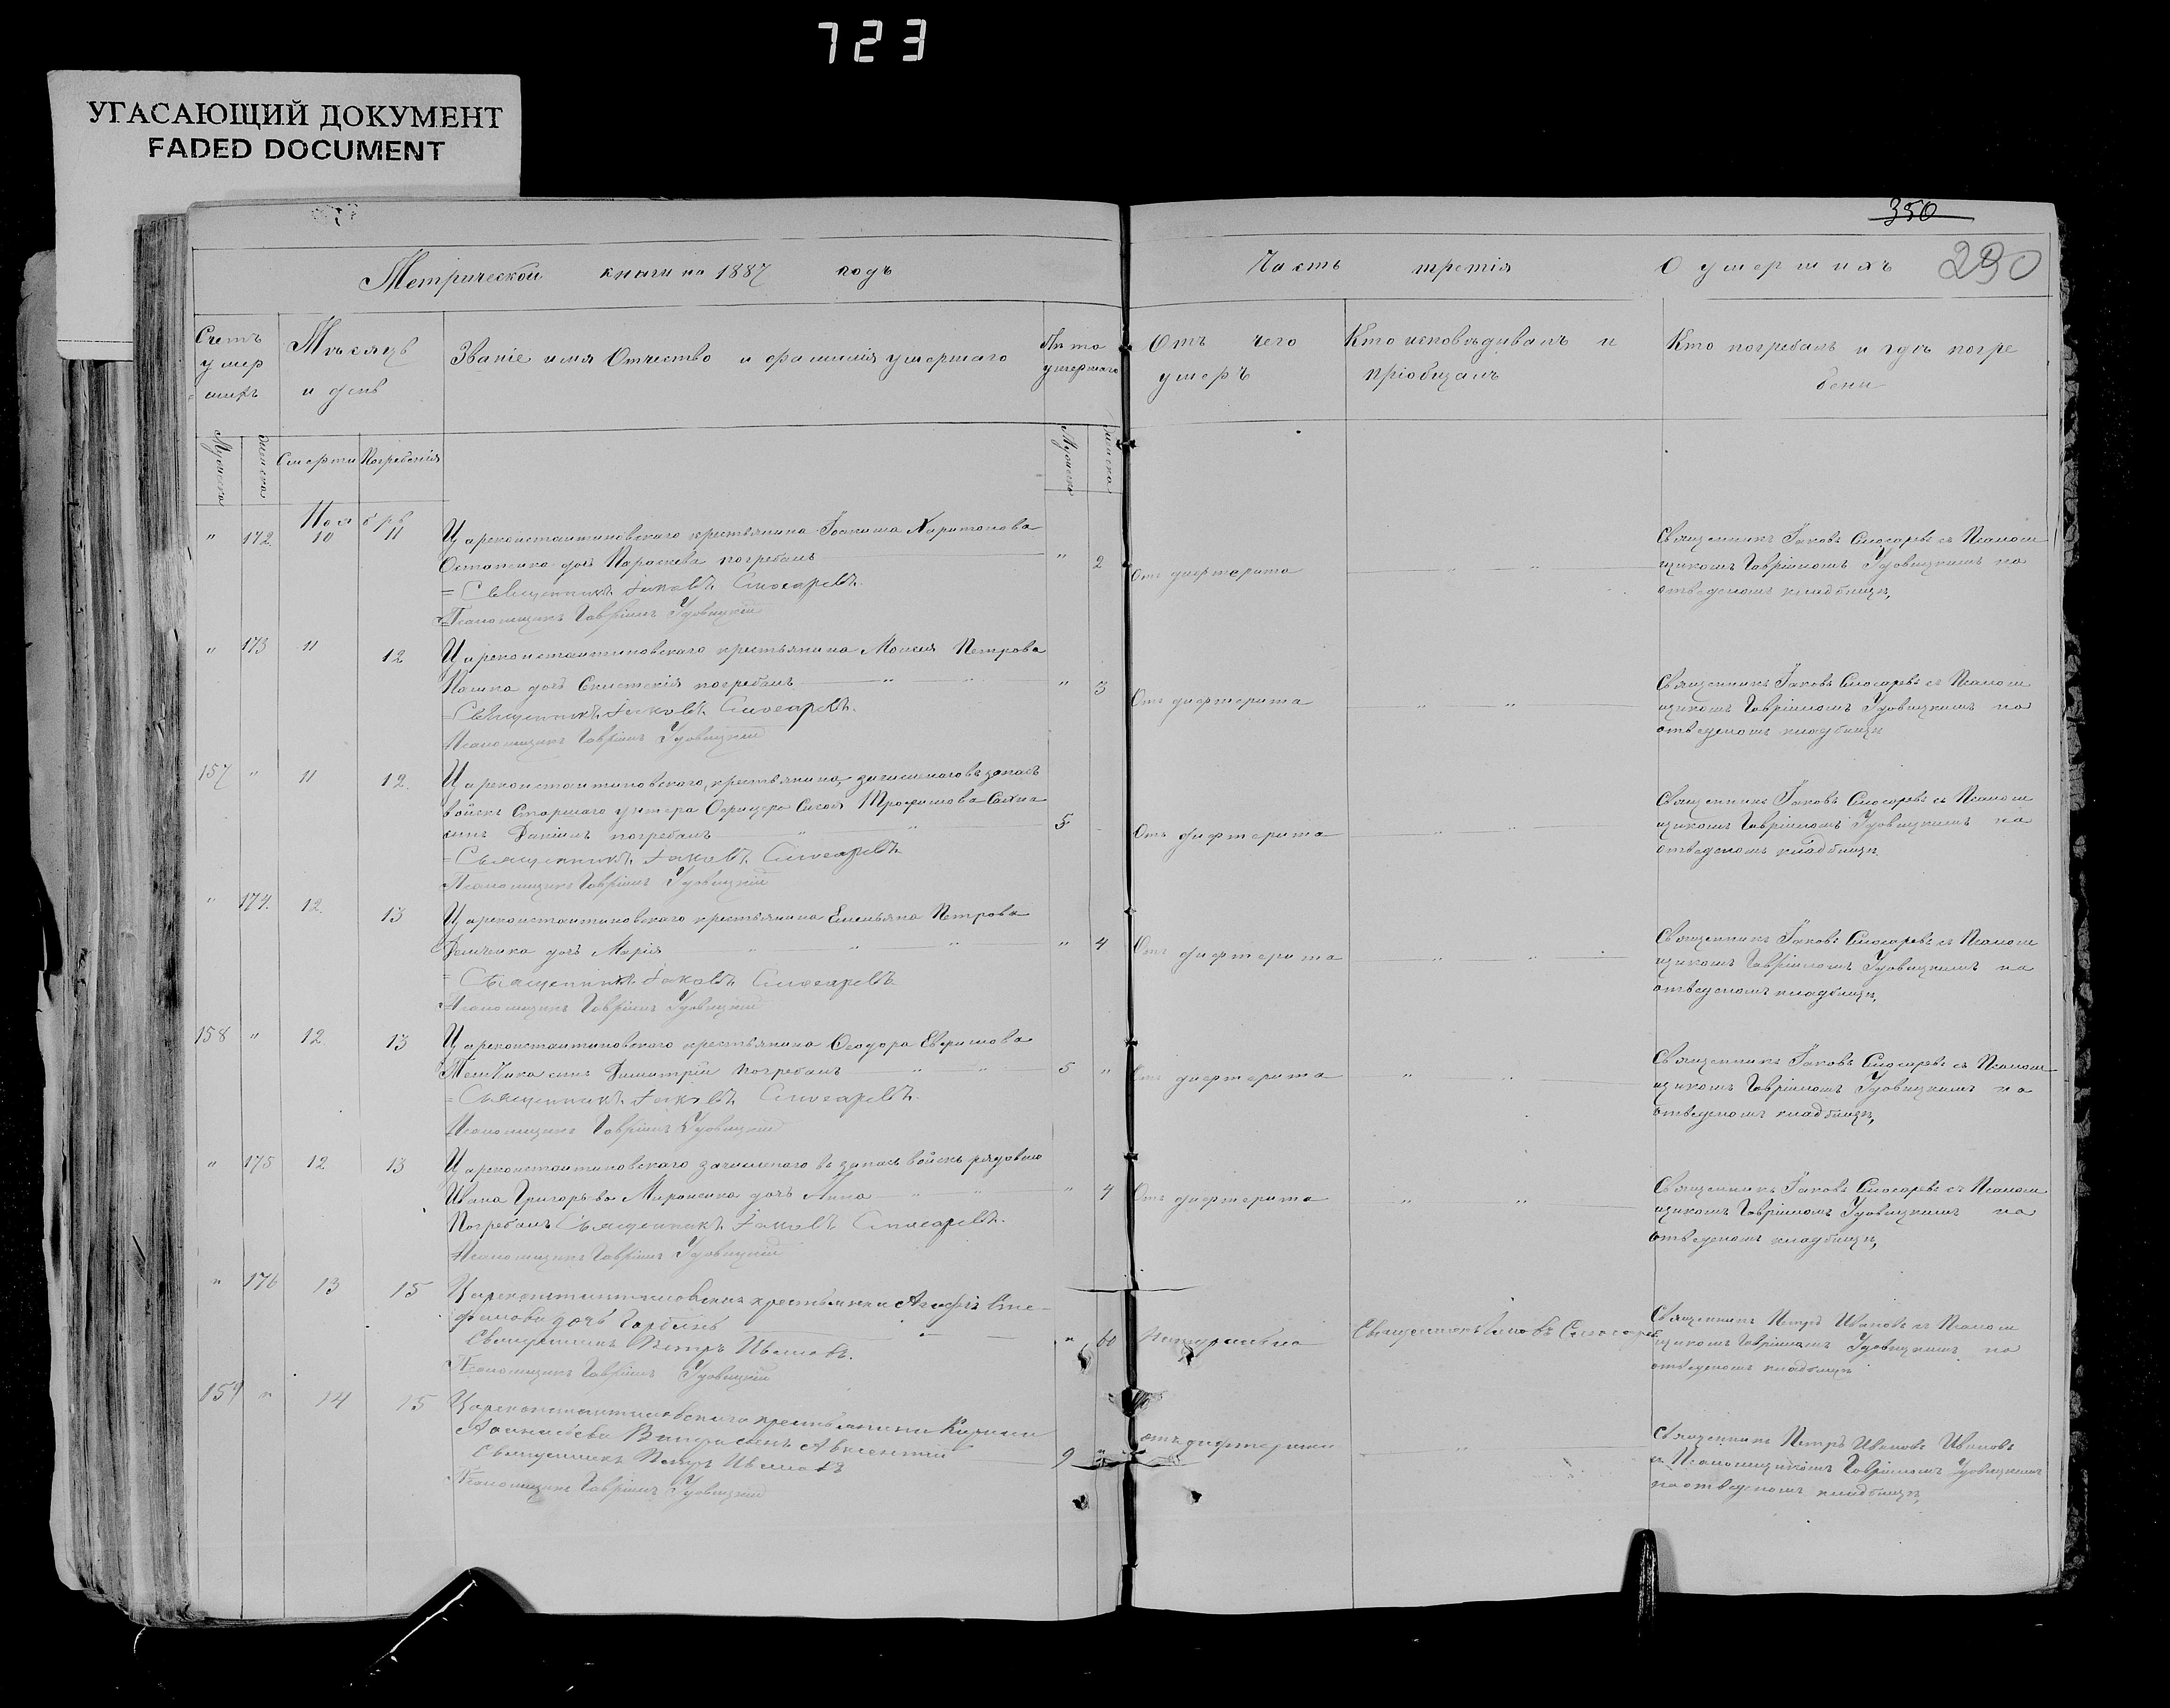 723
УГАСАЮЩИЙ ДОКУМЕНТ
FADED DOCUMENT
350
290
Метрической книги на 1887 годъ
Часть третія О умершихъ
Счетъ умер шихъ
Мѣсяцъ и день
Званіе имя Отчество и фамилія умершаго
Лѣта умершаго
Отъ чего умеръ
Кто исповѣдивалъ и пріобщалъ
Кто погребалъ и гдѣ погре бенъ
Мужеска
женска
Смерти
Погребенія
Мужеска
женска
Ноябрь
" 172. 10 11
Цареконстантиновскаго крестьянина Іоакима Харитонова
Остапенко дочь Параскева погребалъ " 2
Отъ дифтерита
= Священникъ Іаковъ Слюсаревъ.
Псаломщикъ Гавріилъ Удовицкій
Священникъ Іаковъ Слюсаревъ съ Псалом
щикомъ Гавріиломъ Удовицкимъ на
отведеномъ кладбищѣ,
" 173 11 12
Цареконстантиновскаго крестьянина Моисея Петрова
дочь погребалъ " 3
Отъ дифтерита
= Священникъ Іаковъ Слюсаревъ.
Псаломщикъ Гавріилъ Удовицкій
Священникъ Іаковъ Слюсаревъ съ Псалом
щикомъ Гавріиломъ Удовицкимъ на
отведеномъ кладбищѣ
157 " 11 12.
Цареконстантиновскаго, крестьянина, зачисленаго въ запасъ
войскъ Старшаго унтера Офицера Трофимова
сынъ Даніилъ погребалъ 5
Отъ дифтерита
= Священникъ Іаковъ Слюсаревъ
Псаломщикъ Гавріилъ Удовицкій
Священникъ Іаковъ Слюсаревъ съ Псалом
щикомъ Гавріиломъ Удовицкимъ на
отведеномъ кладбищѣ.
" 174. 12. 13
Цареконстантиновскаго крестьянина Емельяна Петрова
Демченка дочь Марія " 4
Отъ дифтерита
= Священникъ Іаковъ Слюсаревъ
Псаломщикъ Гавріилъ Удовицкій
Священникъ Іаковъ Слюсаревъ съ Псалом
щикомъ Гавріиломъ Удовицкимъ на
отведеномъ кладбищѣ,
158 " 12. 13
Цареконстантиновскаго крестьянина Ѳеодора Евфимова
сынъ Димитрій погребалъ 5 "
Отъ дифтерита
= Священникъ Іаковъ Слюсаревъ.
Псаломщикъ Гавріилъ Удовицкій
Священникъ Іаковъ Слюсаревъ съ Псалом
щикомъ Гавріиломъ Удовицкимъ на
отведеномъ кладбищѣ,
" 175 12 13
Цареконстантиновскаго зачисленого въ запасъ войскъ рядового
Ивана Григорьева Мироненка дочь Анна " 4
Отъ дифтерита
Погребалъ Священникъ Іаковъ Слюсаревъ.
Псаломщикъ Гавріилъ Удовицкій
Священникъ Іаковъ Слюсаревъ съ Псалом
щикомъ Гавріиломъ Удовицкимъ на
отведеномъ кладбищѣ,
" 176 13 15
Цареконстантиновская крестьянка Агафія Сте-
фанова дочь " 60
Священникъ Іаковъ Слюсаревъ
Священникъ Петръ Ивановъ.
Псаломщикъ Гавріилъ Удовицкій
Священникъ Петръ Ивановъ съ Псалом
щикомъ Гавріиломъ Удовицкимъ на
отведеномъ кладбищѣ
159 " 14 15
Цареконстантиновскаго крестьянина
сынъ Авксентій 9 "
отъ дифтерита
Священникъ Петръ Ивановъ
Псаломщикъ Гавріилъ Удовицкій
Священникъ Петръ Ивановъ Ивановъ
съ Псаломщикомъ Гавріиломъ Удовицкимъ
на отведеномъ кладбищѣ,